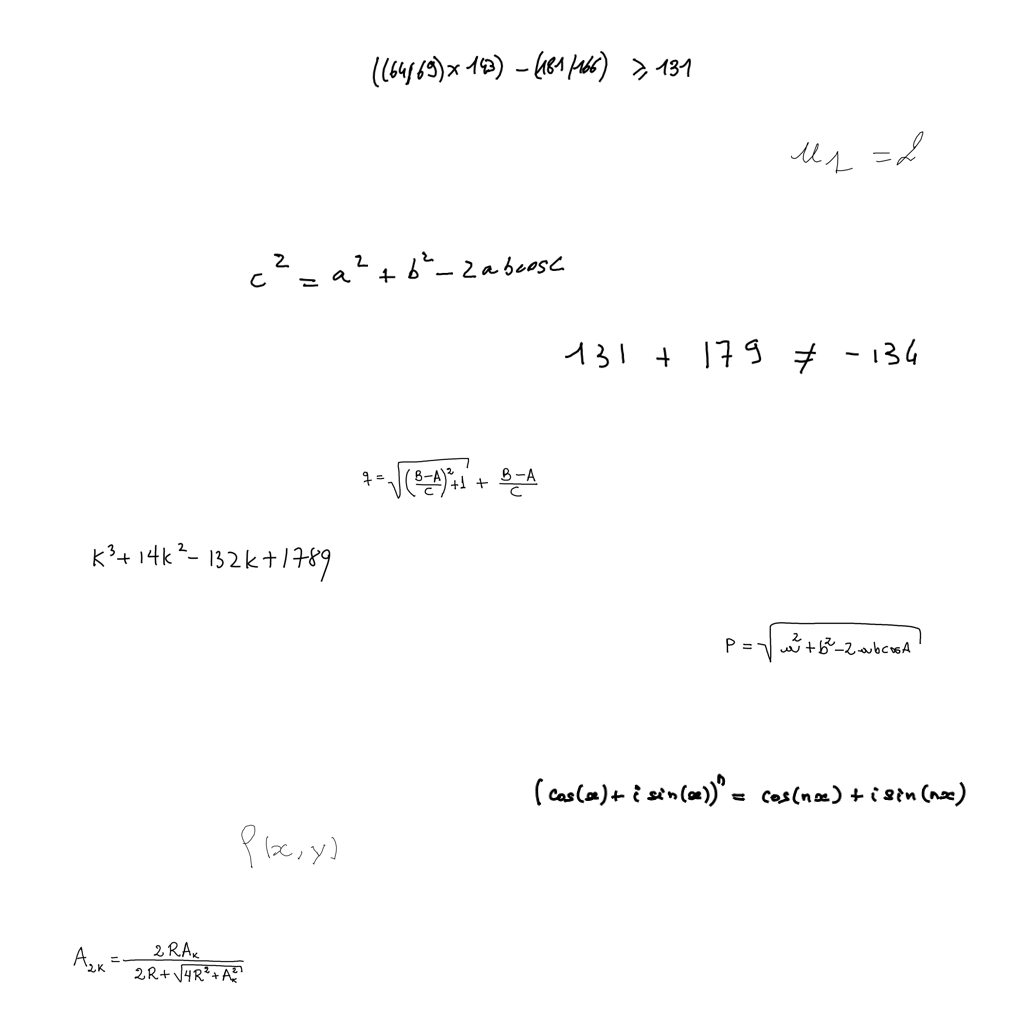 ((64/69)×143) − (181/166) ⩾ 131
u₁ = 2
c² = a² + b² − 2abcosC
131 + 179 ≠ −134
q = √((B−A)/C)²+1) + (B−A)/C
k³ + 14k² − 132k + 1789
P = √(a² + b² − 2abcosA)
(cos(x) + i sin(x))ⁿ = cos(nx) + i sin(nx)
ρ(x, y)
A₂ₖ = 2RAₖ / (2R + √(4R² + Aₖ²))